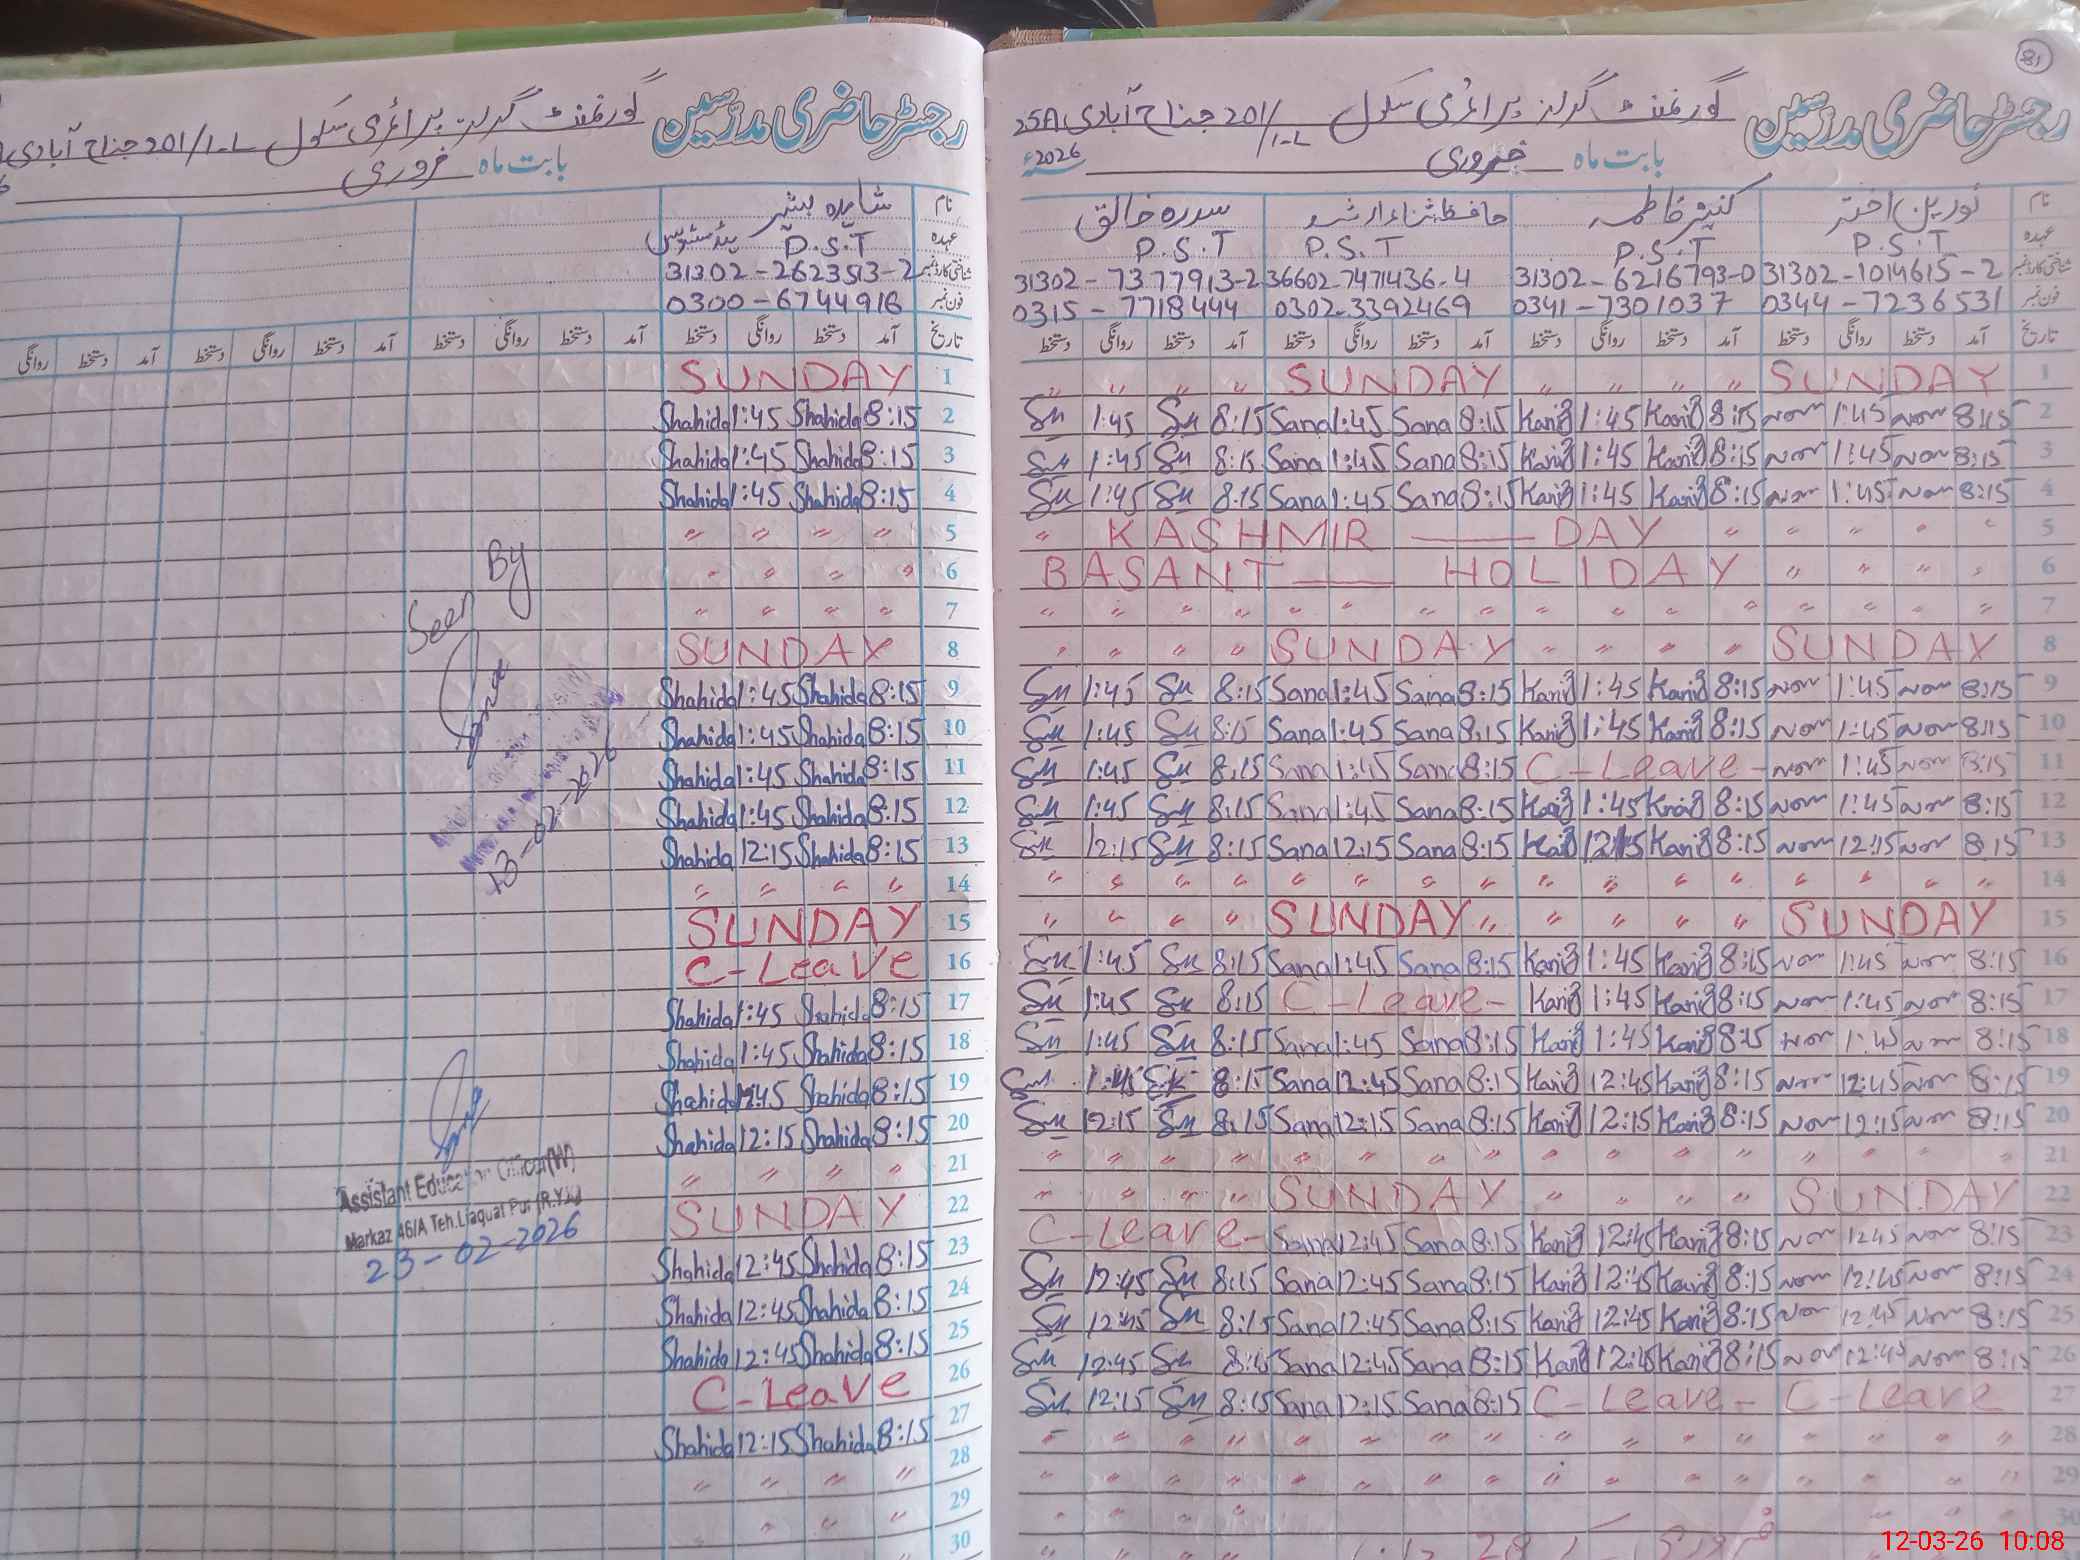 رجسٹر حاضری مدرسین گورنمنٹ گرلز پرائمری سکول 201/1-L جناح آبادی
بابت ماہ فروری
نام شاہدہ بشیر
عہدہ P.S.T
شناختی کارڈ نمبر 31302-2623513-2
فون نمبر 0300-6744916
تاریخ آمد دستخط روانگی دستخط آمد دستخط روانگی دستخط آمد دستخط روانگی دستخط آمد دستخط روانگی
1 SUNDAY
2 Shahida 1:45 Shahida 8:15
3 Shahida 1:45 Shahida 8:15
4 Shahida 1:45 Shahida 8:15
5 〃 〃 〃 〃
6 〃 〃 〃 〃
7 〃 〃 〃 〃
8 SUNDAY
9 Shahida 1:45 Shahida 8:15
10 Shahida 1:45 Shahida 8:15
11 Shahida 1:45 Shahida 8:15
12 Shahida 1:45 Shahida 8:15
13 Shahida 12:15 Shahida 8:15
14 〃 〃 〃 〃
15 SUNDAY
16 C-Leave
17 Shahida 1:45 Shahida 8:15
18 Shahida 1:45 Shahida 8:15
19 Shahida 12:45 Shahida 8:15
20 Shahida 12:15 Shahida 8:15
21 〃 〃 〃 〃
22 SUNDAY
23 Shahida 12:45 Shahida 8:15
24 Shahida 12:45 Shahida 8:15
25 Shahida 12:45 Shahida 8:15
26 C-Leave
27 Shahida 12:15 Shahida 8:15
28 〃 〃 〃 〃
29
30
Seen By
13-02-2026
Assistant Education Officer(W)
Markaz 46/A Teh.Liaquat Pur (R.Y.K)
23-02-2026
81
رجسٹر حاضری مدرسین گورنمنٹ گرلز پرائمری سکول 201/1-L جناح آبادی 25A
بابت ماہ فروری 2026ء
نام نورین اختر کنیز فاطمہ حافظہ ثناء ارشد سدرہ خالق
عہدہ P.S.T P.S.T P.S.T P.S.T
31302-7377913-2 36602-7471436-4 31302-6216793-0 31302-1014615-2 شناختی کارڈ نمبر
0315-7718444 0302-3392469 0341-7301037 0344-7236531 فون نمبر
تاریخ آمد دستخط روانگی دستخط آمد دستخط روانگی دستخط آمد دستخط روانگی دستخط آمد دستخط روانگی دستخط
〃 〃 〃 〃 SUNDAY 〃 〃 〃 〃 SUNDAY 1
1:45 8:15 Sana 1:45 Sana 8:15 Kaniz 1:45 Kaniz 8:15 1:45 8:15 2
1:45 8:15 Sana 1:45 Sana 8:15 Kaniz 1:45 Kaniz 8:15 1:45 8:15 3
1:45 8:15 Sana 1:45 Sana 8:15 Kaniz 1:45 Kaniz 8:15 1:45 8:15 4
〃 KASHMIR — DAY 〃 〃 〃 〃 〃 5
BASANT — HOLIDAY 〃 〃 〃 〃 6
〃 〃 〃 〃 〃 〃 〃 〃 〃 〃 〃 〃 〃 〃 〃 〃 7
〃 〃 〃 〃 SUNDAY 〃 〃 〃 〃 SUNDAY 8
1:45 8:15 Sana 1:45 Sana 8:15 Kaniz 1:45 Kaniz 8:15 1:45 8:15 9
1:45 8:15 Sana 1:45 Sana 8:15 Kaniz 1:45 Kaniz 8:15 1:45 8:15 10
1:45 8:15 Sana 1:45 Sana 8:15 C-Leave- 1:45 8:15 11
1:45 8:15 Sana 1:45 Sana 8:15 Kaniz 1:45 Kaniz 8:15 1:45 8:15 12
12:15 8:15 Sana 12:15 Sana 8:15 Kaniz 12:15 Kaniz 8:15 12:15 8:15 13
〃 〃 〃 〃 〃 〃 〃 〃 〃 〃 〃 〃 〃 〃 〃 〃 14
〃 〃 〃 〃 SUNDAY 〃 〃 〃 〃 〃 SUNDAY 15
1:45 8:15 Sana 1:45 Sana 8:15 Kaniz 1:45 Kaniz 8:15 1:45 8:15 16
1:45 8:15 C-Leave- Kaniz 1:45 Kaniz 8:15 1:45 8:15 17
1:45 8:15 Sana 1:45 Sana 8:15 Kaniz 1:45 Kaniz 8:15 1:45 8:15 18
8:15 Sana 12:45 Sana 8:15 Kaniz 12:45 Kaniz 8:15 12:45 8:15 19
12:15 8:15 Sana 12:15 Sana 8:15 Kaniz 12:15 Kaniz 8:15 12:15 8:15 20
〃 〃 〃 〃 〃 〃 〃 〃 〃 〃 〃 〃 〃 〃 〃 〃 21
〃 〃 〃 〃 SUNDAY 〃 〃 〃 〃 SUNDAY 22
C-Leave- Sana 12:45 Sana 8:15 Kaniz 12:45 Kaniz 8:15 12:45 8:15 23
12:45 8:15 Sana 12:45 Sana 8:15 Kaniz 12:45 Kaniz 8:15 12:45 8:15 24
12:45 8:15 Sana 12:45 Sana 8:15 Kaniz 12:45 Kaniz 8:15 12:45 8:15 25
12:45 8:15 Sana 12:45 Sana 8:15 Kaniz 12:45 Kaniz 8:15 12:45 8:15 26
12:15 8:15 Sana 12:15 Sana 8:15 C-Leave- C-Leave 27
〃 〃 〃 〃 〃 〃 〃 〃 〃 〃 〃 〃 〃 〃 〃 〃 28
〃 〃 〃 〃 〃 〃 〃 〃 〃 〃 〃 〃 〃 〃 〃 〃 29
30
12-03-26 10:08